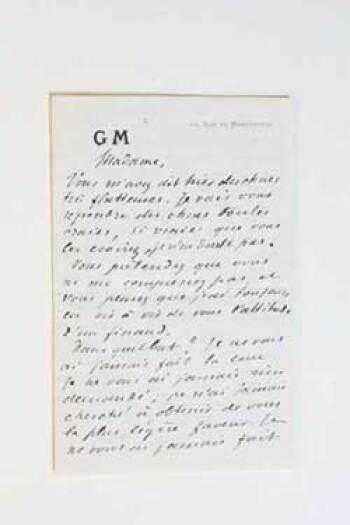 GM
Madame,
Vous m'avez dit hier des choses
très flatteuses. Je vais vous
répondre des choses toutes
vraies, si vraies que vous
les croirez, je n'en doute pas.
Vous prétendez que vous
ne me comprenez pas et
vous pensez que j'ai toujours
en vis à vis de vous l'attitude
d'un finaud.
Dans quel but? Je ne vous
ai jamais fait la cour
Je ne vous ai jamais rien
demandé; je n'ai jamais
cherché à obtenir de vous
la plus légère faveur. Je
ne vous ai jamais fait